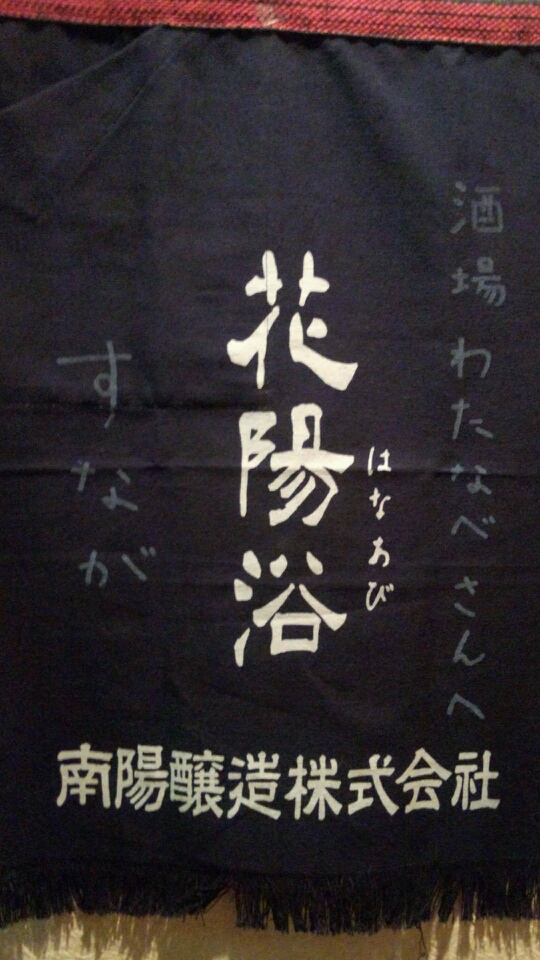 酒場わたなべさんへ
花陽浴
はなあび
すながが
南陽醸造株式会社